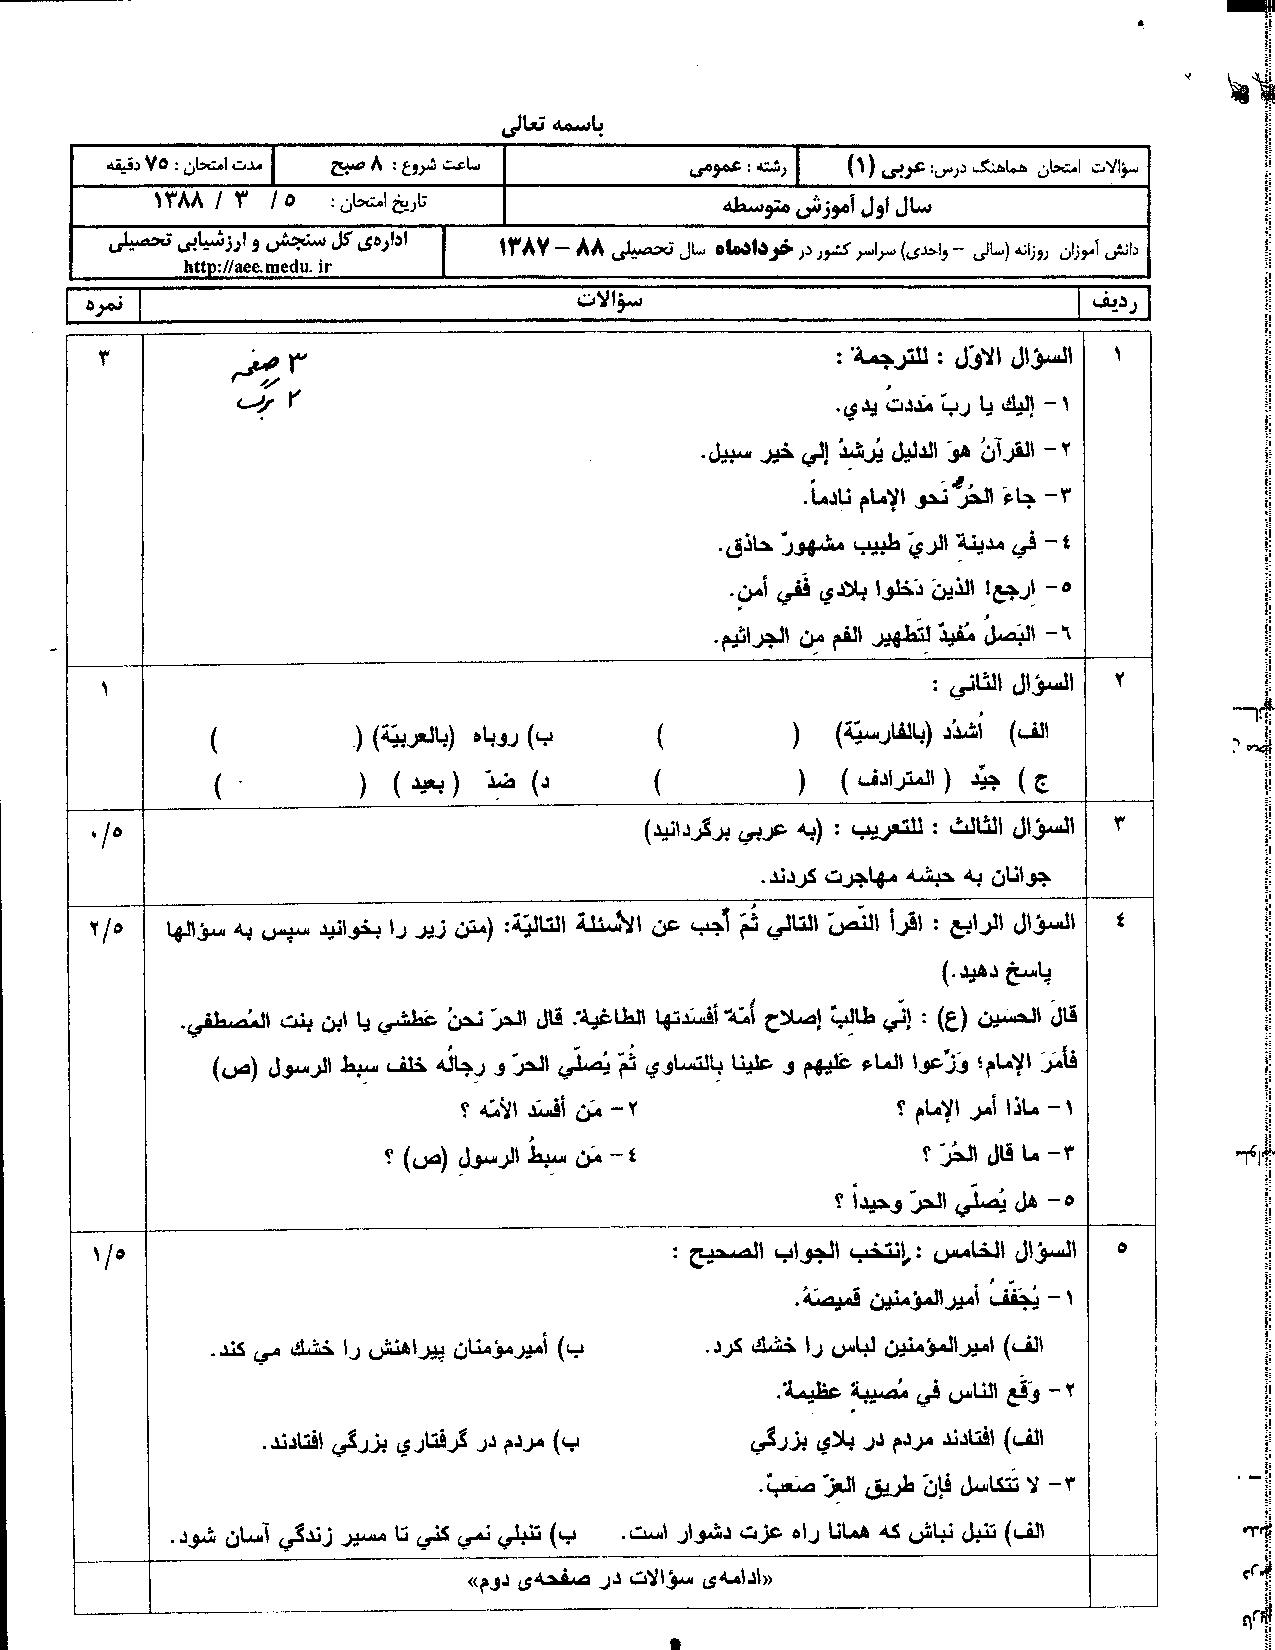 باسمه تعالی
سؤالات امتحان هماهنگ درس: عربی (۱)
رشته : عمومی
ساعت شروع : ۸ صبح
مدت امتحان : ۷۵ دقیقه
سال اول آموزش متوسطه
تاریخ امتحان : ۵ / ۳ / ۱۳۸۸
دانش آموزان روزانه (سالی – واحدی) سراسر کشور در خردادماه سال تحصیلی ۸۸ – ۱۳۸۷
اداره‌ی کل سنجش و ارزشیابی تحصیلی
http://aee.medu.ir
ردیف سؤالات نمره
۱ السؤال الاوّل : للترجمة : ۳
۳ صفحه
۲ برگ
۱- إلیك یا ربّ مَددتُ یدي.
۲- القرآنُ هوَ الدلیل یُرشدُ إلي خیر سبیل.
۳- جاءَ الحُرُّ نَحو الإمام نادماً.
٤- في مدینةِ الريّ طبیب مشهورٌ حاذق.
٥- ارجع! الذینَ دَخلوا بلادي فَفي أمنٍ.
٦- البَصلُ مُفیدٌ لتَطهیرِ الفم مِن الجراثیم.
۲ السؤال الثاني : ۱
الف) اُشدُد (بالفارسیّة) ( ) ب) روباه (بالعربیّة) ( )
ج ) جیِّد ( المترادف ) ( ) د) ضدّ ( بعید ) ( )
۳ السؤال الثالث : للتعریب : (به عربي برگردانید) ۰/٥
جوانان به حبشه مهاجرت کردند.
٤ السؤال الرابع : اقرأ النّصّ التالي ثُمّ أجب عن الأسئلة التالیّة: (متن زیر را بخوانید سپس به سؤالها ۲/٥
پاسخ دهید.)
قالَ الحسین (ع) : إنّي طالبٌ إصلاح أمّة أفسَدتها الطاغیة. قال الحرّ نحنُ عَطشي یا ابن بنت المُصطفي.
فأمَرَ الإمام؛ وَزِّعوا الماء عَلیهم و علینا بِالتساوي ثُمّ یُصلّي الحرّ و رجالُه خلف سبط الرسول (ص)
۱- ماذا أمر الإمام ؟ ۲- مَن أفسَد الأمّه ؟
۳- ما قال الحُرّ ؟ ٤- مَن سبطُ الرسولِ (ص) ؟
٥- هل یُصلّي الحرّ وحیداً ؟
٥ السؤال الخامس : إنتخب الجواب الصحیح : ۱/٥
۱- یُجَفِّفُ أمیرالمؤمنین قمیصَهُ.
الف) امیرالمؤمنین لباس را خشك کرد. ب) أمیرمؤمنان پیراهنش را خشك مي کند.
۲- وَقَع الناس في مُصیبةٍ عظیمة.
الف) افتادند مردم در بلاي بزرگي ب) مردم در گرفتاري بزرگي افتادند.
۳- لا تَتَکاسل فإنّ طریق العزّ صَعبٌ.
الف) تنبل نباش که همانا راه عزت دشوار است. ب) تنبلي نمي کني تا مسیر زندگي آسان شود.
«ادامه‌ی سؤالات در صفحه‌ی دوم»